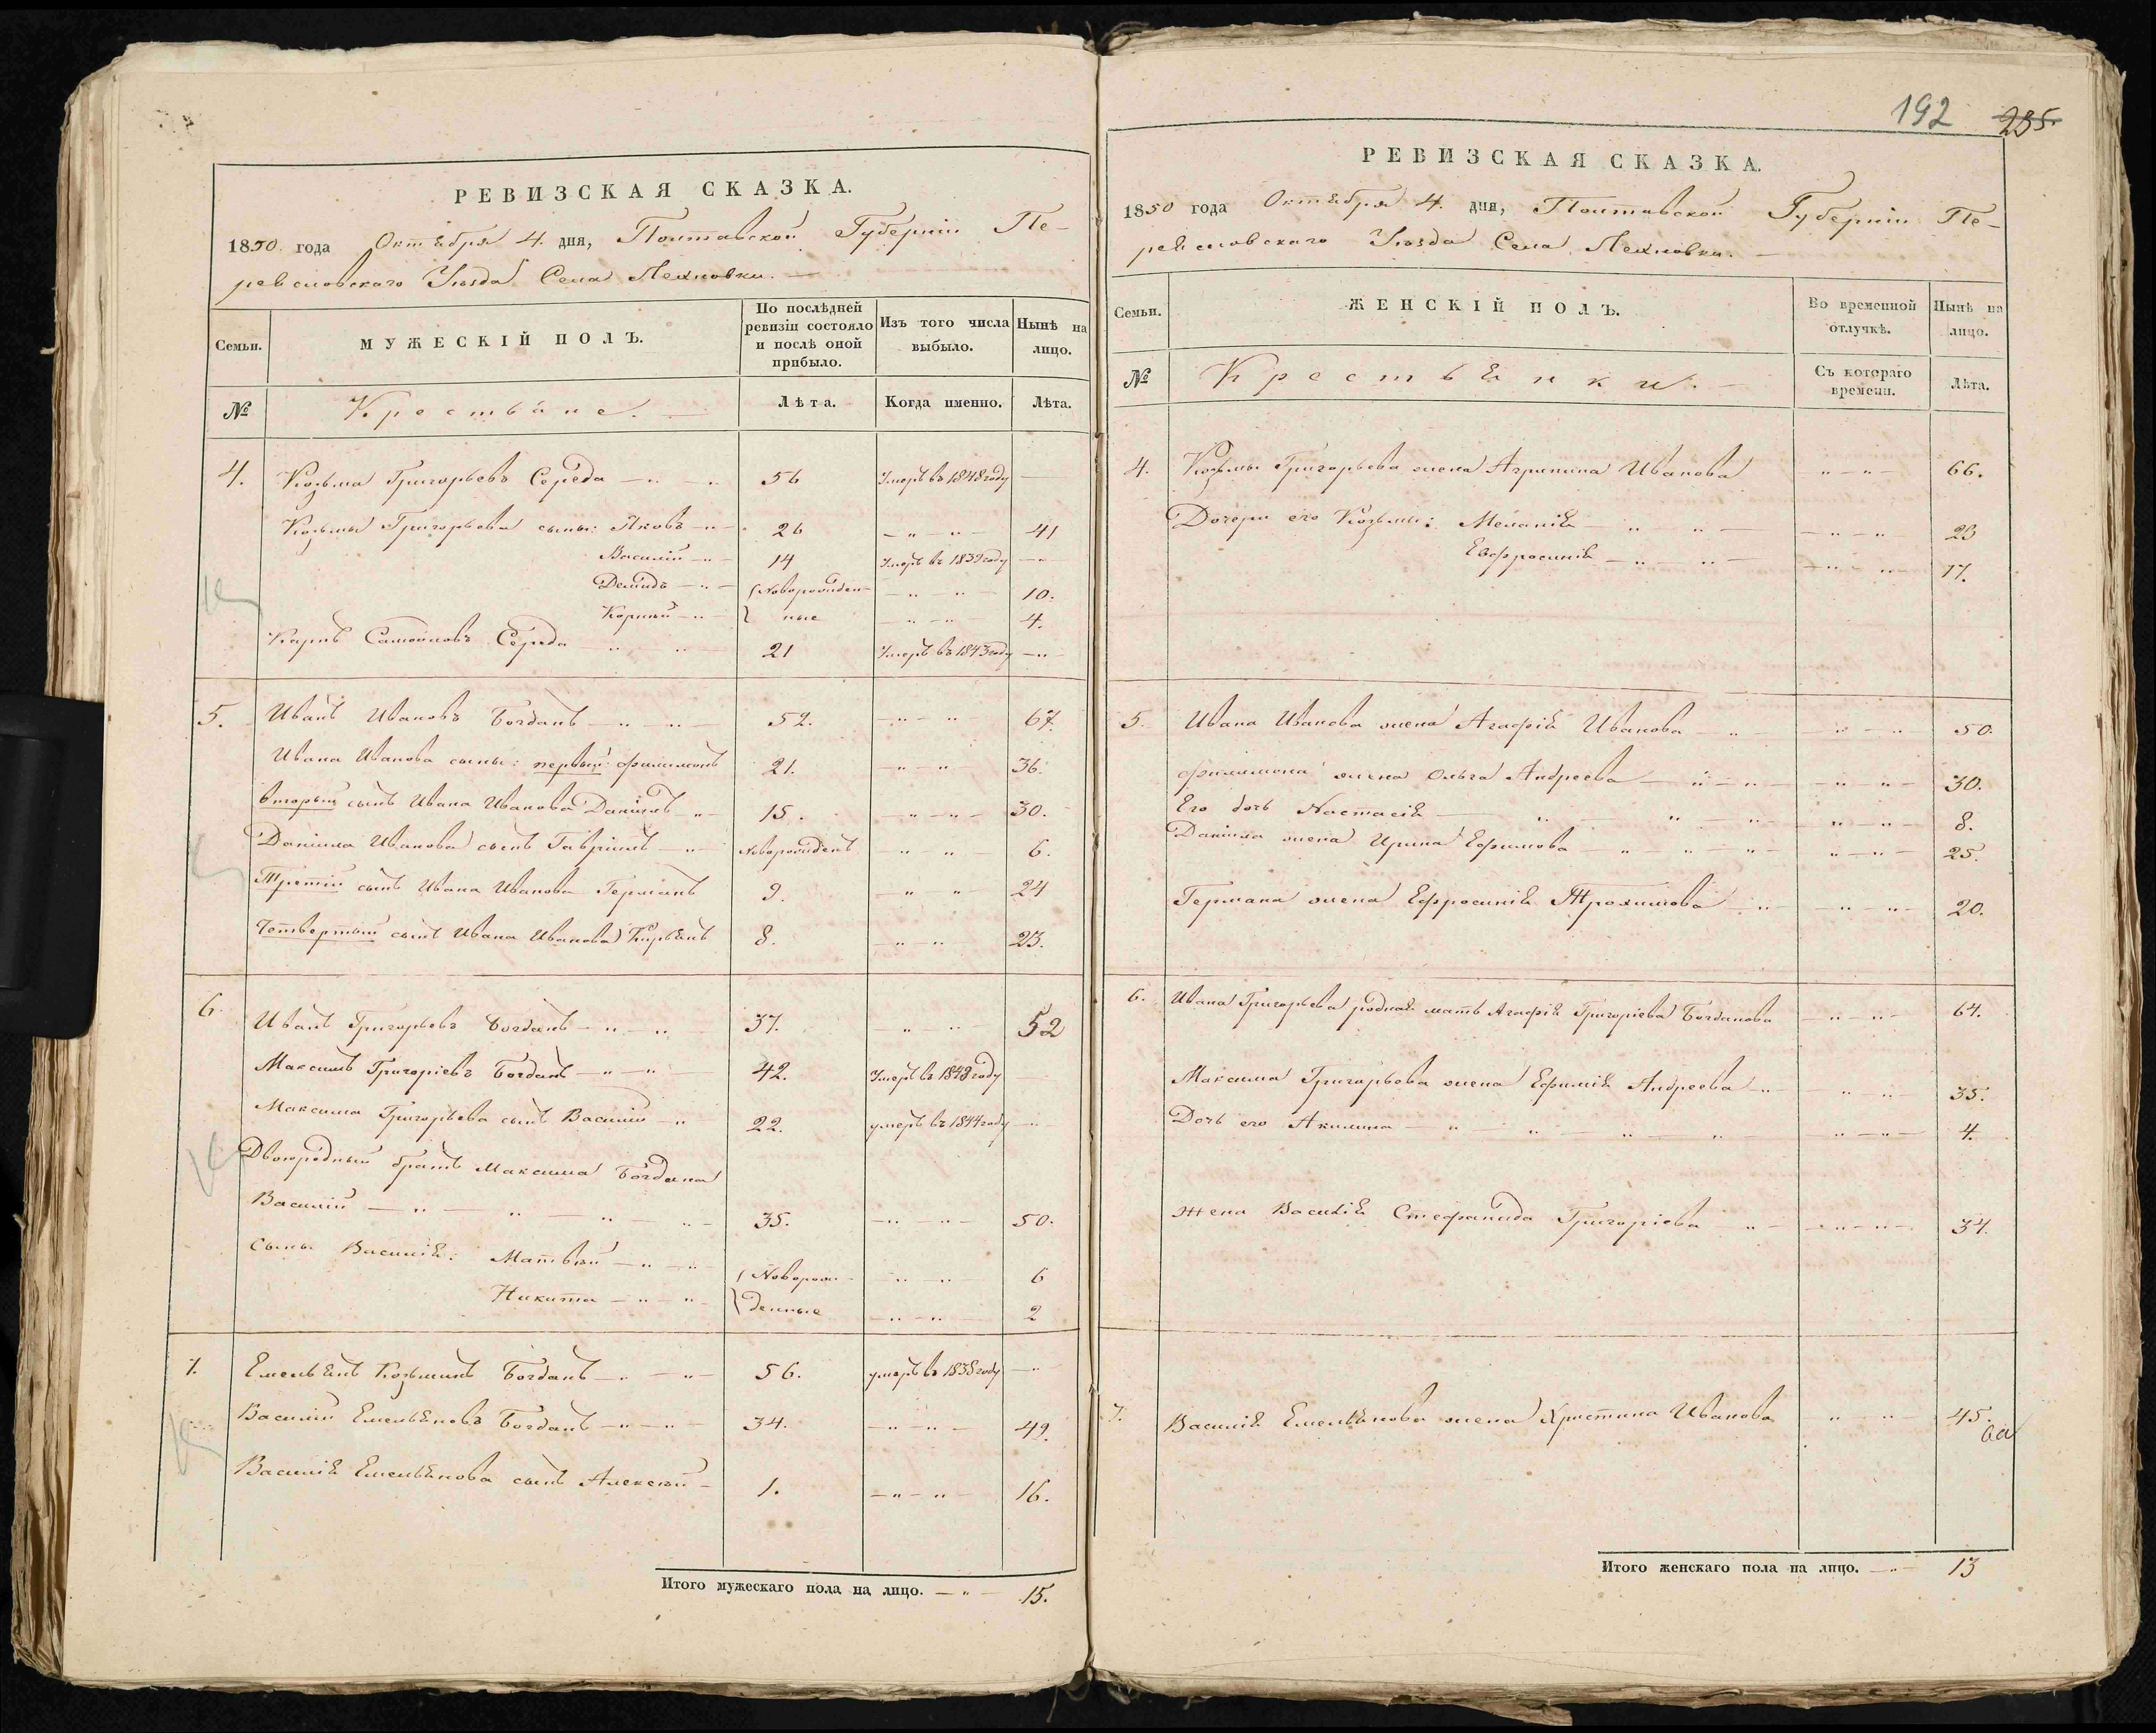 РЕВИЗСКАЯ СКАЗКА.
1850 года Октября 4. дня, Полтавской Губерніи Пе-
реяславскаго Уѣзда Села Лехновки. —
Семьи. МУЖЕСКІЙ ПОЛЪ. По послѣдней ревизіи состояло и послѣ оной прибыло. Изъ того числа выбыло. Нынѣ на лицо.
№ Крестьяне. Лѣта. Когда именно. Лѣта.
4. Козьма Григорьевъ Середа 56 Умеръ въ 1848 году —
Козьмы Григорьева сыны: Яковъ 26 — 41
Василій 14 Умеръ въ 1839 году —
Демидъ (Новорожден- — 10.
Корнѣй ные — 4.
Карпъ Самойловъ Середа 21 Умеръ въ 1843 году —
5. Иванъ Ивановъ Богданъ 52. — 67.
Ивана Иванова сыны: первый: Филимонъ 21. — 36.
вторый сынъ Ивана Иванова Даніилъ 15. — 30.
Даніила Иванова сынъ Гавріилъ Новорожденъ — 6.
Третій сынъ Ивана Иванова Германъ 9. — 24
Четвертый сынъ Ивана Иванова Кирьянъ 8. — 23.
6. Иванъ Григорьевъ Богданъ 37. — 52
Максимъ Григоріевъ Богданъ 42. Умеръ въ 1848 году —
Максима Григорьева сынъ Василій 22. умеръ въ 1844 году —
Двоюродный братъ Максима Богдана
Василій 35. — 50.
Сыны Василія: Матвѣй (Новорож- — 6
Никита денные — 2
7. Емельянъ Козьминъ Богданъ 56. умеръ въ 1838 году —
Василій Емельяновъ Богданъ 34. — 49.
Василія Емельянова сынъ Алексѣй 1. — 16.
Итого мужескаго пола на лицо. — 15.
192 235.
РЕВИЗСКАЯ СКАЗКА.
1850 года Октября 4. дня, Полтавской Губерніи Пе-
реяславскаго Уѣзда Села Лехновки. —
Семьи. ЖЕНСКІЙ ПОЛЪ. Во временной отлучкѣ. Нынѣ на лицо.
№ Крестьянки. Съ котораго времени. Лѣта.
4. Козьмы Григорьева жена Агрипина Иванова — 66.
Дочери его Козьмы: Меланія — 23
Евфросинія — 17.
5. Ивана Иванова жена Агафія Иванова — 50.
Филимона жена Ольга Андреева — 30.
Его дочь Настасія — 8.
Даніила жена Ирина Ефимова — 25.
Германа жена Ефросинія Трохимова — 20.
6. Ивана Григорьева родная мать Агафія Григоріева Богданова — 64.
Максима Григорьева жена Ефимія Андреева — 35.
Дочь его Акилина — 4.
Жена Василія Стефанида Григоріева — 34.
7. Василія Емельянова жена Христина Иванова — 45.
Итого женскаго пола на лицо. — 13